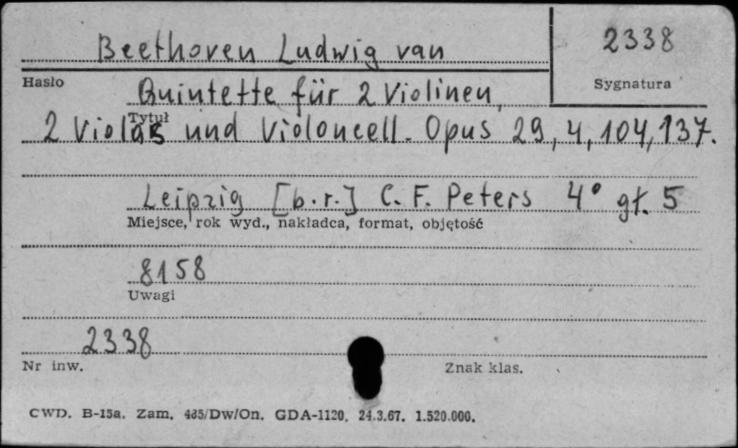 Beethoven Ludwig van
2338
Hasło
Sygnatura
Quintette für 2 Violinen,
Tytuł
2 Violas und Violoncell. Opus 29, 4, 104, 137.
Leipzig [b.r.] C. F. Peters 4° gł. 5
Miejsce, rok wyd., nakładca, format, objętość
8158
Uwagi
2338
Nr inw.
Znak klas.
CWD. B-15a. Zam. 485/Dw/On. GDA-1120. 24.3.67. 1.520.000.